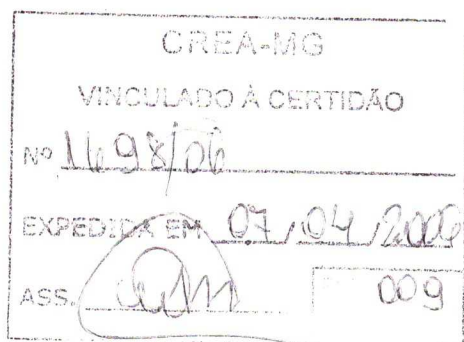 CREA-MG
VINCULADO À CERTIDÃO
Nº 1698/06
EXPEDIDA EM 07/04/2006
ASS.
009